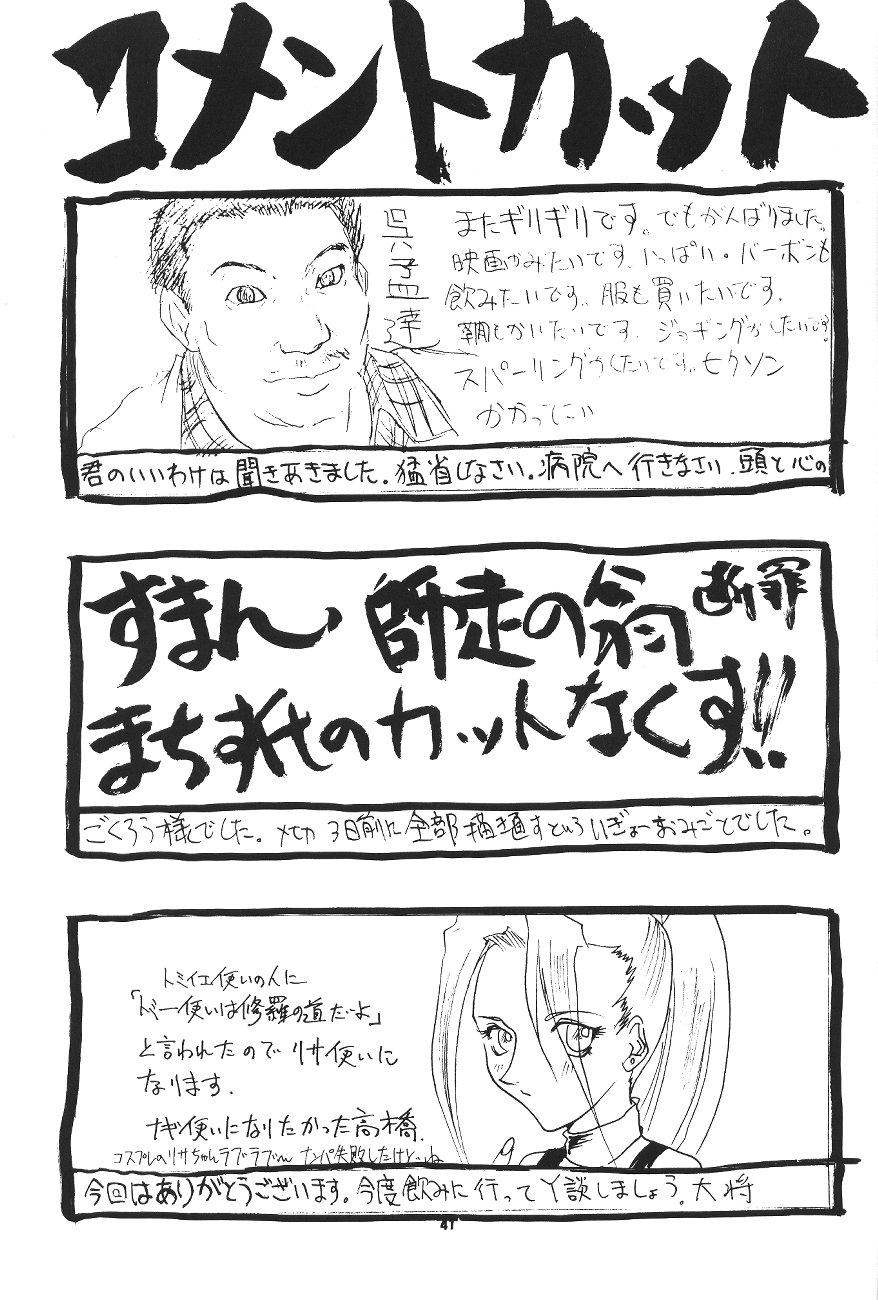 コメントカット
またギリギリです。でもがんばりました。
映画がみたいです、いっぱい。バーボンも
飲みたいです。服も買いたいです。
靴もかいたいです。ジョギングがしたいです。
スパーリングがしたいです。ヒクソン
かかってこい
君のいいわけは聞きあきました。猛省しなさい。病院へ行きなさい、頭と心の
すまん、師走の翁
断罪
まちずたのカットなくす!!
ごくろう様でした。〆切3日前に全部描き直すといういぎょーおみごとでした。
トミイエ使いの人に
「ドベー使いは修羅の道だよ」
と言われたのでリサ使いに
なります。
ナギ使いになりたかった高橋。
コスプレのリサちゃんラブラブ〜ん ナンパ失敗したけどーね
今回はありがとうございます。今度飲みに行ってY談しましょう。大将
41